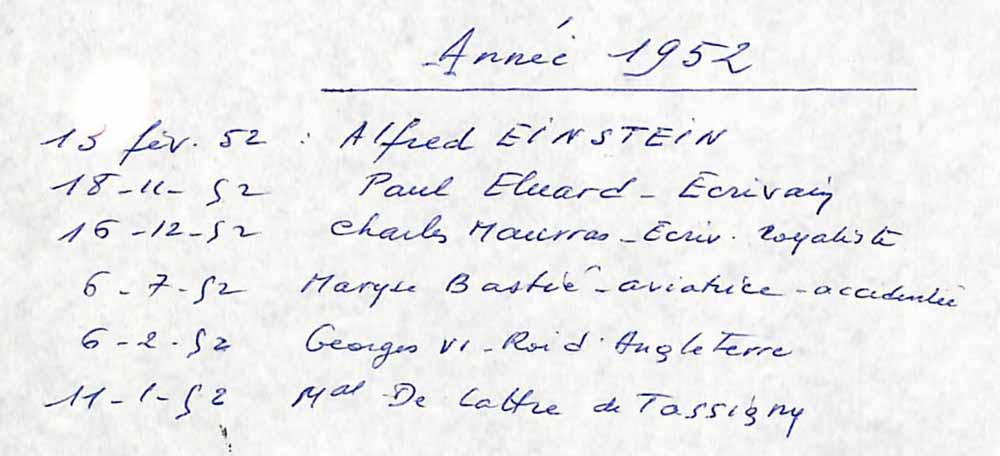 Année 1952
13 fév. 52 : Alfred EINSTEIN
18-11-52 Paul Eluard - Ecrivain
16-12-52 Charles Maurras - Ecriv. royaliste
6-7-52 Maryse Bastié - aviatrice - accidentée
6-2-52 Georges VI - Roi d'Angleterre
11-1-52 Mal De Lattre de Tassigny